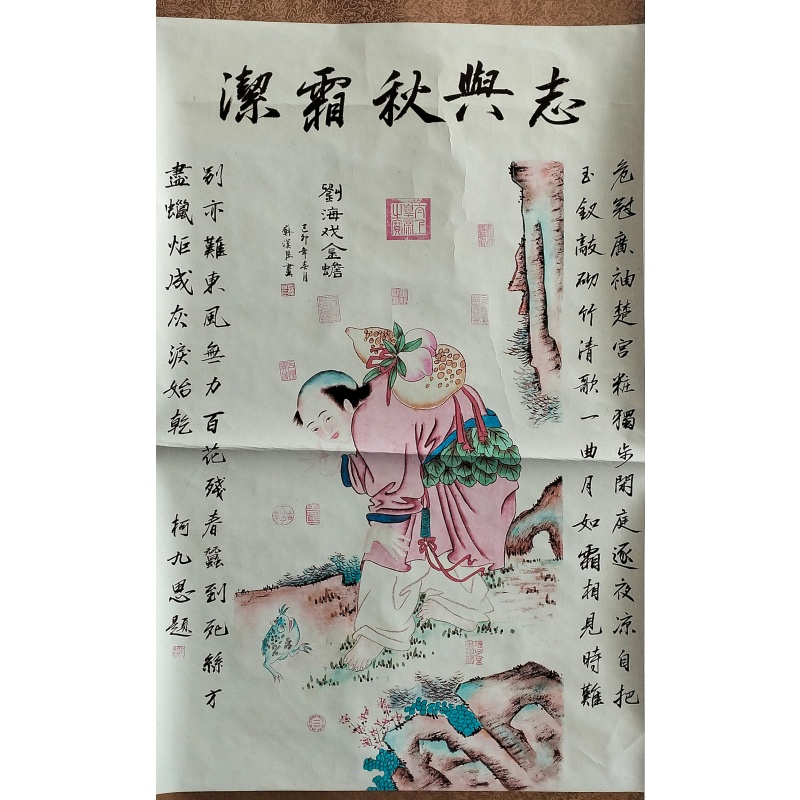 志與秋霜潔
危冠廣袖楚宮粧獨步閑庭逐夜凉自把
玉釵敲砌竹清歌一曲月如霜相見時難
別亦難東風無力百花殘春蠶到死絲方
盡蠟炬成灰淚始乾
柯九思題
劉海戏金蟾
己卯年春月
蘇漢臣畫